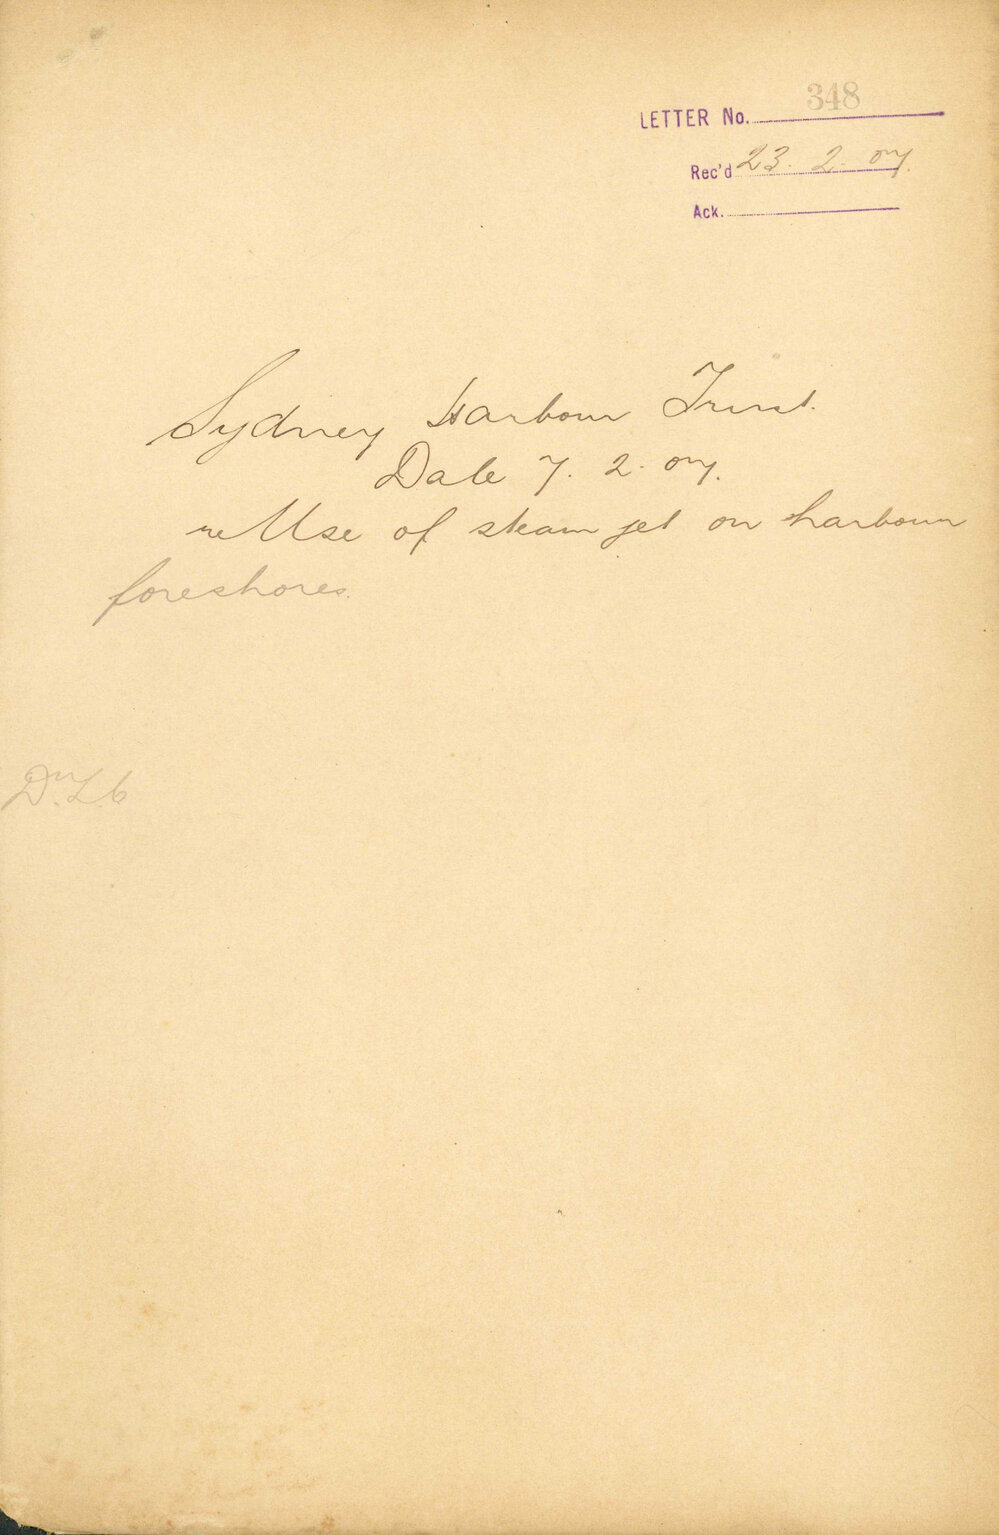 LETTER No. 348
Rec'd 23. 2. 07.
Ack.
Sydney Harbour Trust.
Date 7. 2. 07.
re Use of steam jet on harbour
foreshores.